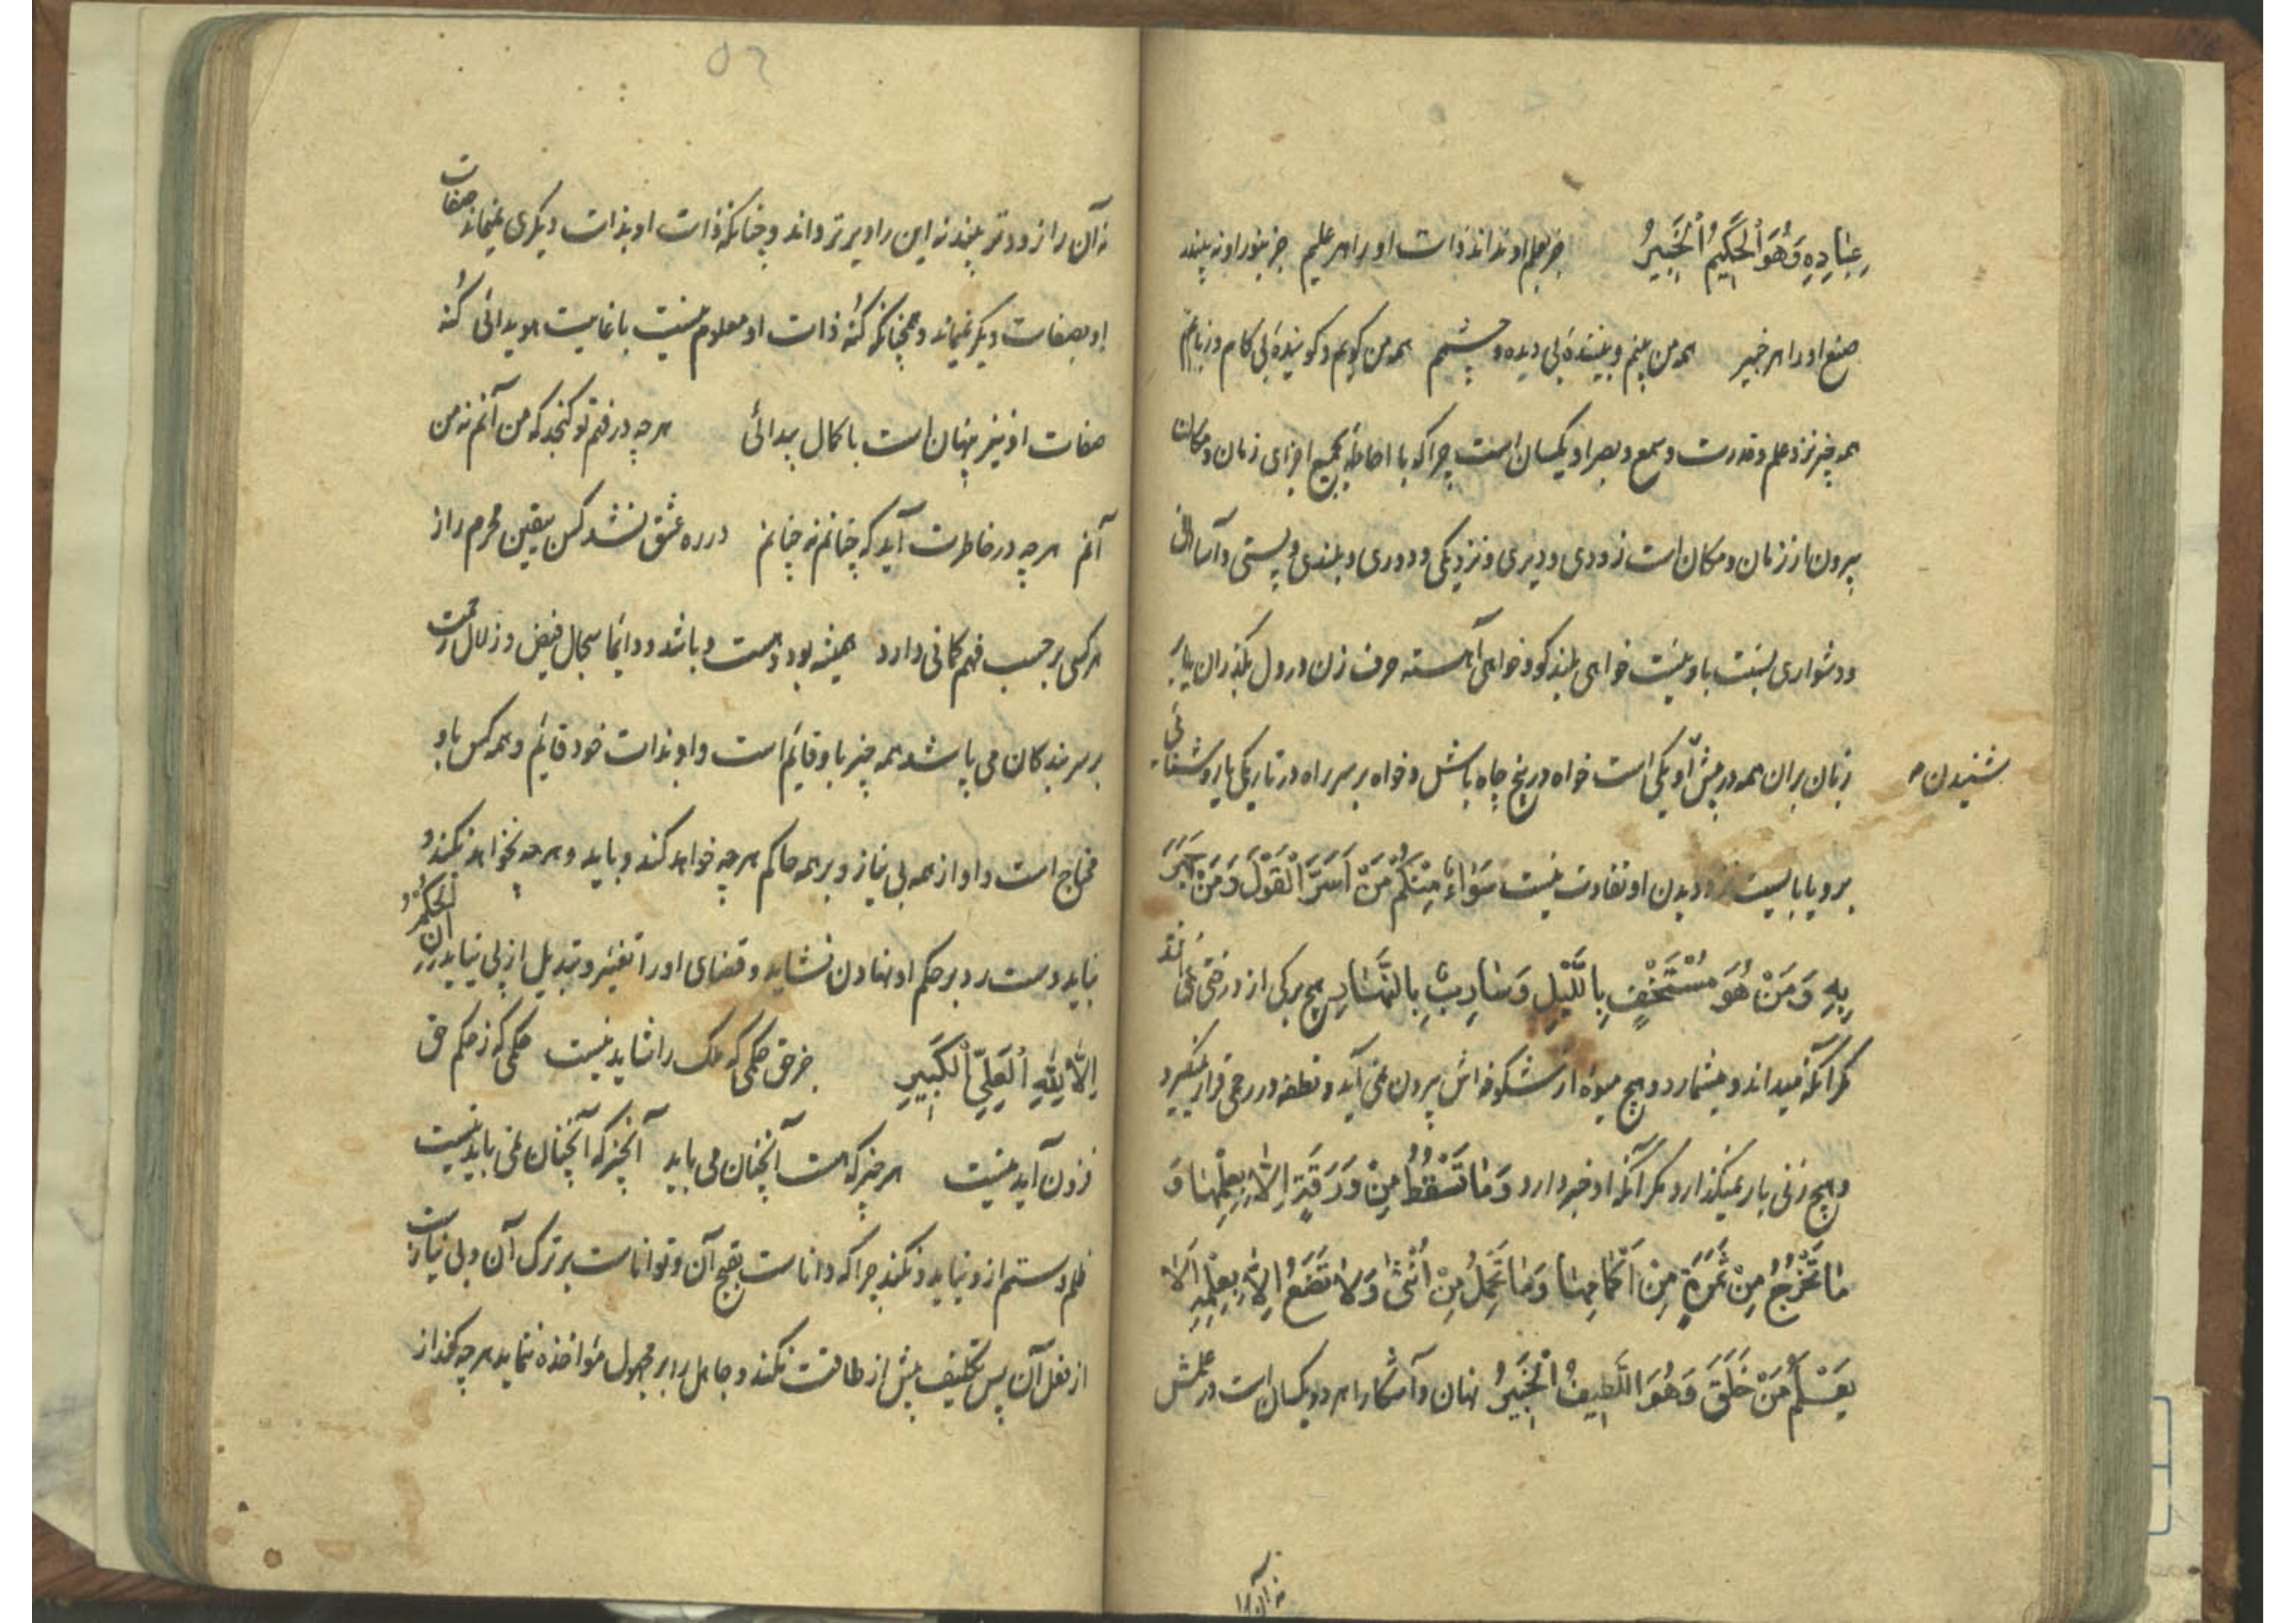 عِبٰادِهِ وَهُوَ الْحَكِيمُ الْخَبِيرُ جز بعلم او نداند ذات او را هر علیم جز بنور او نه بیند
صنع او را هر خبیر همه من بینم و بیننده بی دیده و چشم همه من گویم و گوینده بی کام و زبانم
همه چیز نزد علم و قدرت و سمع و بصر او یکسان است چرا که با احاطه بجمیع اجزای زمان و مکان
بیرون از زمان و مکان است زودی و دیری و نزدیکی و دوری و بلندی و پستی و آسانی
و دشواری نسبت باو نیست خواهی بلند گو و خواهی آهسته حرف زن در دل بگذران یا بر
زبان بران همه در پیش او یکی است خواه در بیخ چاه باش و خواه بر سر راه در تاریکی یا روشنایی
شنیدن
برو یا بایست نزد دیدن او تفاوت نیست سَوٰاءٌ مِنْكُمْ مَنْ اَسَرَّ الْقَوْلَ وَمَنْ جَهَرَ
بِهِ وَمَنْ هُوَ مُسْتَخْفٍ بِاللَّيْلِ وَسٰارِبٌ بِالنَّهٰارِ هیچ برگی از درختی نمی افتد
مگر آنکه میداند و میشمارد و هیچ میوه از شکوفه اش بیرون نمی آید و نطفه در رحمی قرار نمیگیرد
و هیچ زنی بار نمیگذارد مگر آنکه او خبر دارد وَمٰا تَسْقُطُ مِنْ وَرَقَةٍ اِلّٰا بِعِلْمِهٰا وَ
مٰا تَخْرُجُ مِنْ ثَمَرَةٍ مِنْ اَكْمٰامِهٰا وَمٰا تَحْمِلُ مِنْ اُنْثٰى وَلٰا تَضَعُ اِلّٰا بِعِلْمِهِ اَلٰا
يَعْلَمُ مَنْ خَلَقَ وَهُوَ اللَّطِيفُ الْخَبِيرُ نهان و آشکارا هر دو یکسان است در علمش
نه آن را
٥٢
نه آن را زودتر بیند نه این را دیرتر داند و چنانکه ذات او بذات دیگری نمیماند صفات
او بصفات دیگر نمیماند و همچنانکه کُنه ذات او معلوم نیست با غایت هویدائی کُنه
صفات او نیز پنهان است با کمال پیدائی هرچه در فهم تو گنجد که من آنم نه من
آنم هرچه در خاطرت آید که چنانم نه چنانم در ره عشق نشد کس بیقین محرم راز
هر کسی بر حسب فهم گمانی دارد همیشه بود و هست و باشد و دائما سجال فیض و زلال رحمت
بر سر بندگان می پاشد همه چیز باو قایم است و او بذات خود قایم و همه کس باو
محتاج است و او از همه بی نیاز و بر همه حاکم هرچه خواهد کند و باید و هرچه نخواهد نکند و
نباید دست رد بر حکم او نهادن نشاید و قضای او را تغییر و تبدیل از پی نیاید اِنِ الْحُكْمُ
اِلّٰا لِلّٰهِ الْعَلِيِّ الْكَبِيرِ جز حق حکمی که ملک را شاید نیست حکمی که ز حکم حق
فزون آید نیست هر چیز که هست آنچنان می باید آنچیز که آنچنان نمی باید نیست
ظلم و ستم ازو نیاید و نکند چرا که داناست بقبح آن و تواناست بر ترک آن و بی نیاز است
از فعل آن پس تکلیف بیش از طاقت نکند و جاهل را بر مجهول مؤاخذه ننماید هرچه کند از